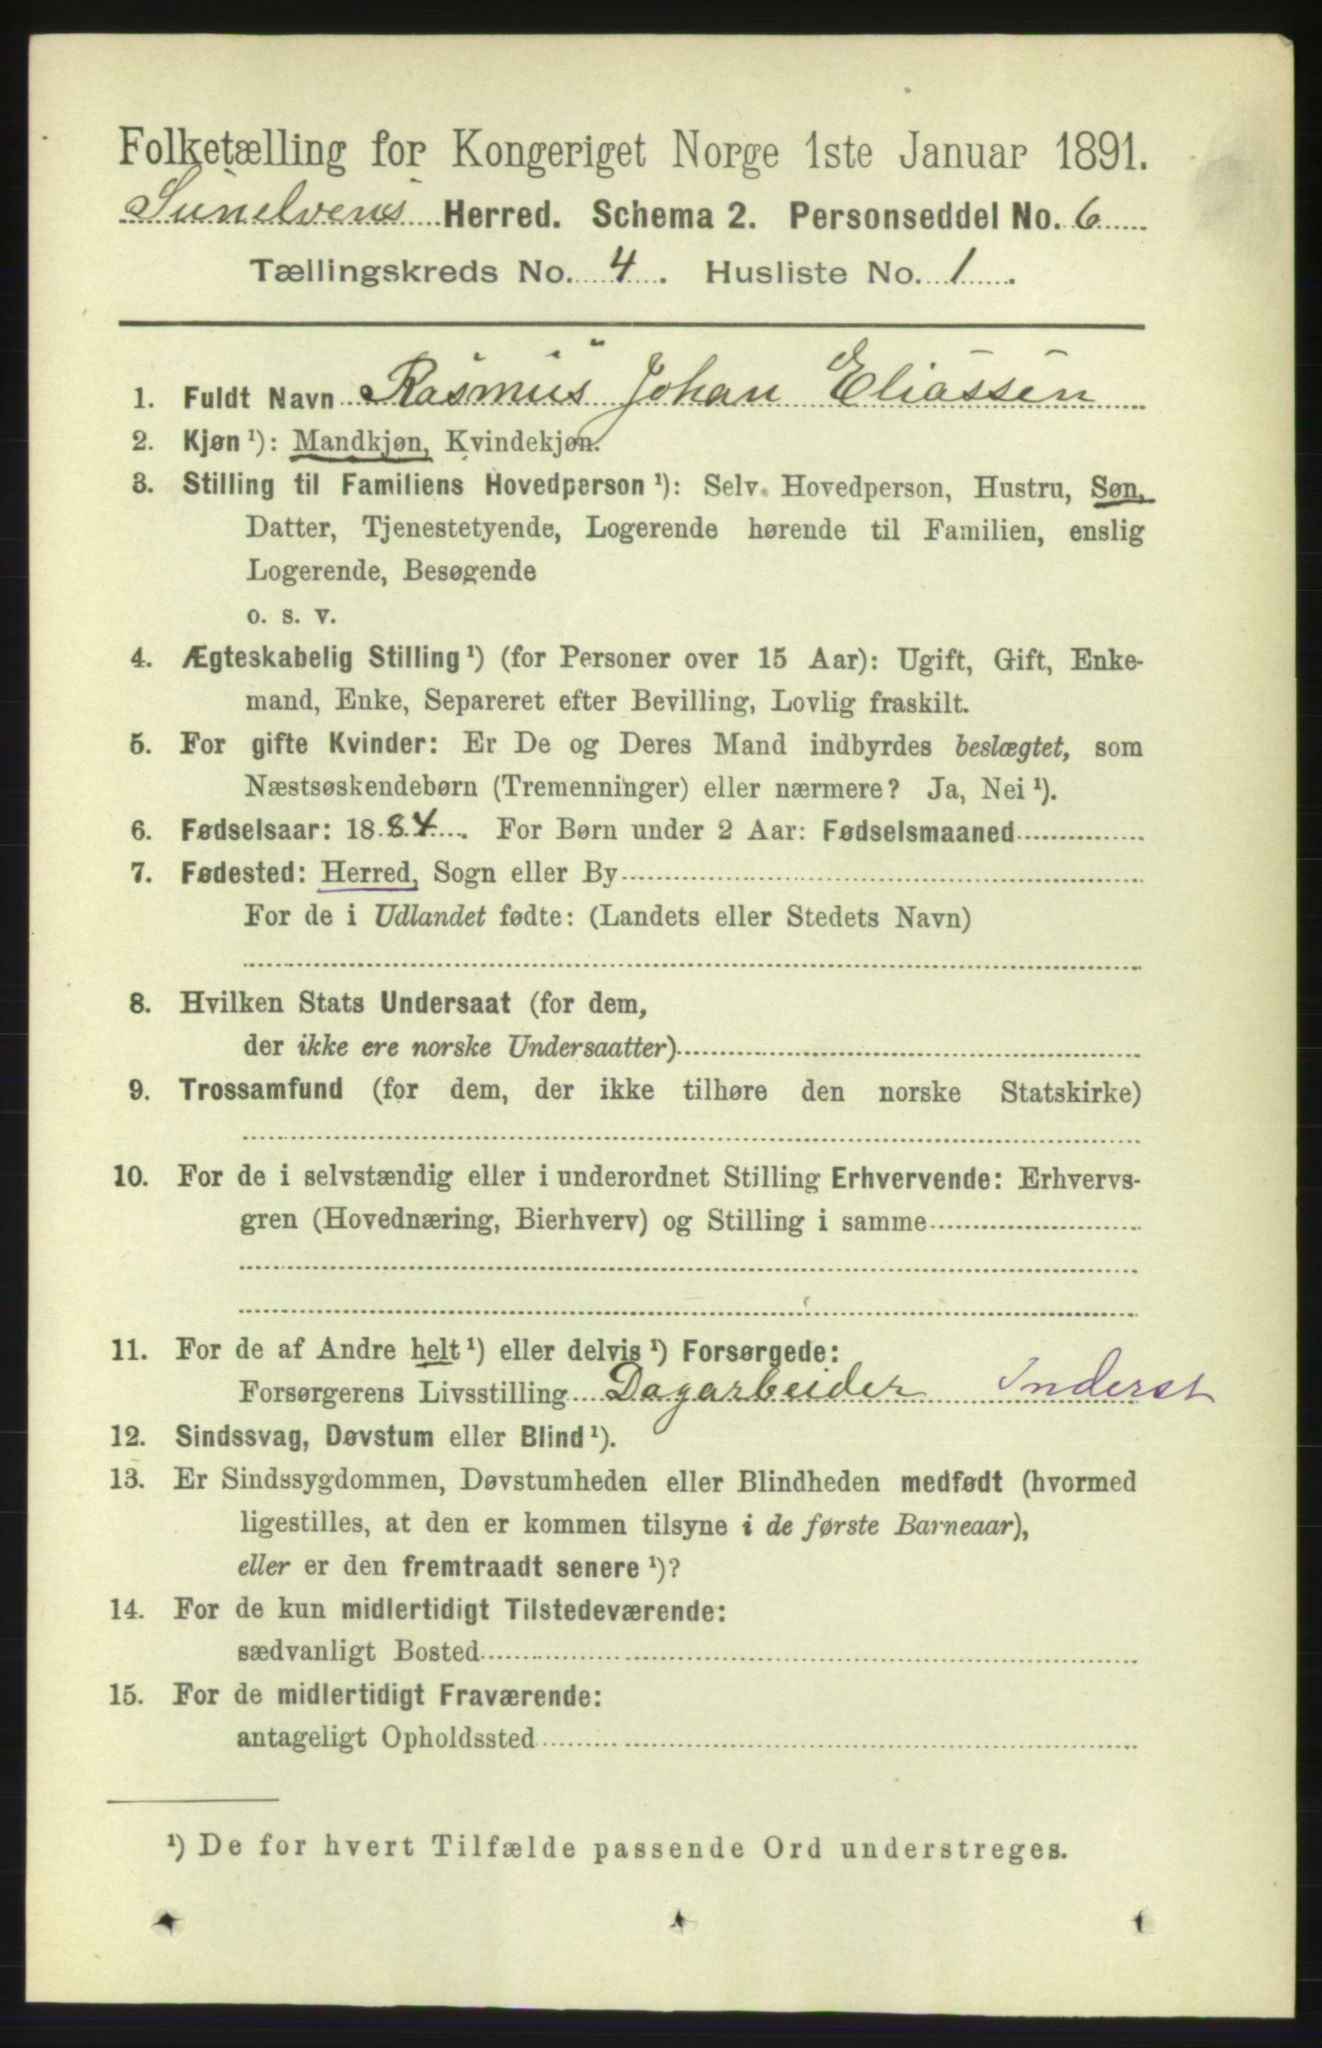 Folketælling for Kongeriget Norge 1ste Januar 1891.
Sunelvens Herred. Schema 2. Personseddel No. 6
Tællingskreds No. 4. Husliste No. 1.
1. Fuldt Navn Rasmus Johan Eliassen
2. Kjøn ¹): Mandkjøn, Kvindekjøn.
3. Stilling til Familiens Hovedperson ¹): Selv. Hovedperson, Hustru, Søn,
Datter, Tjenestetyende, Logerende hørende til Familien, enslig
Logerende, Besøgende
o. s. v.
4. Ægteskabelig Stilling ¹) (for Personer over 15 Aar): Ugift, Gift, Enke-
mand, Enke, Separeret efter Bevilling, Lovlig fraskilt.
5. For gifte Kvinder: Er De og Deres Mand indbyrdes beslægtet, som
Næstsøskendebørn (Tremenninger) eller nærmere? Ja, Nei ¹).
6. Fødselsaar: 1884. For Børn under 2 Aar: Fødselsmaaned
7. Fødested: Herred, Sogn eller By
For de i Udlandet fødte: (Landets eller Stedets Navn)
8. Hvilken Stats Undersaat (for dem,
der ikke ere norske Undersaatter)
9. Trossamfund (for dem, der ikke tilhøre den norske Statskirke)
10. For de i selvstændig eller i underordnet Stilling Erhvervende: Erhvervs-
gren (Hovednæring, Bierhverv) og Stilling i samme
11. For de af Andre helt ¹) eller delvis ¹) Forsørgede:
Forsørgerens Livsstilling Dagarbeider Inderst
12. Sindssvag, Døvstum eller Blind ¹).
13. Er Sindssygdommen, Døvstumheden eller Blindheden medfødt (hvormed
ligestilles, at den er kommen tilsyne i de første Barneaar),
eller er den fremtraadt senere ¹)?
14. For de kun midlertidigt Tilstedeværende:
sædvanligt Bosted
15. For de midlertidigt Fraværende:
antageligt Opholdssted
¹) De for hvert Tilfælde passende Ord understreges.